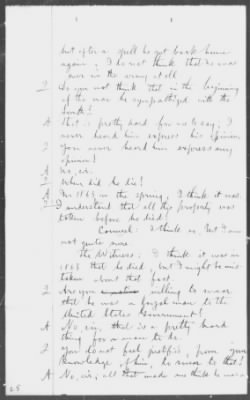 but after a spell he got back home
again; I do not think that he was
ever in the army at all.
Q Do you not think that in the beginning
of the war he sympathized with the
South?
A That is pretty hard for us to say; I
never heard him express his opinion
Q You never heard him express any
opinion?
A No, sir.
Q When did he die?
A In 1863 in the spring, I think it was
I understand that all this property was
taken before he died?
Counsel: I think so, but I am
not quite sure.
The Witness: I think it was in
1863 that he died, but I might be mis
taken about that fact.
Q Are you willing to swear
that he was a loyal man to the
United States Government?
A No, sir, that is a pretty hard
thing for a man to do.
Q You do not feel justified, from your
knowledge of him, he swear to that?
A No, sir; all that made me think he was a